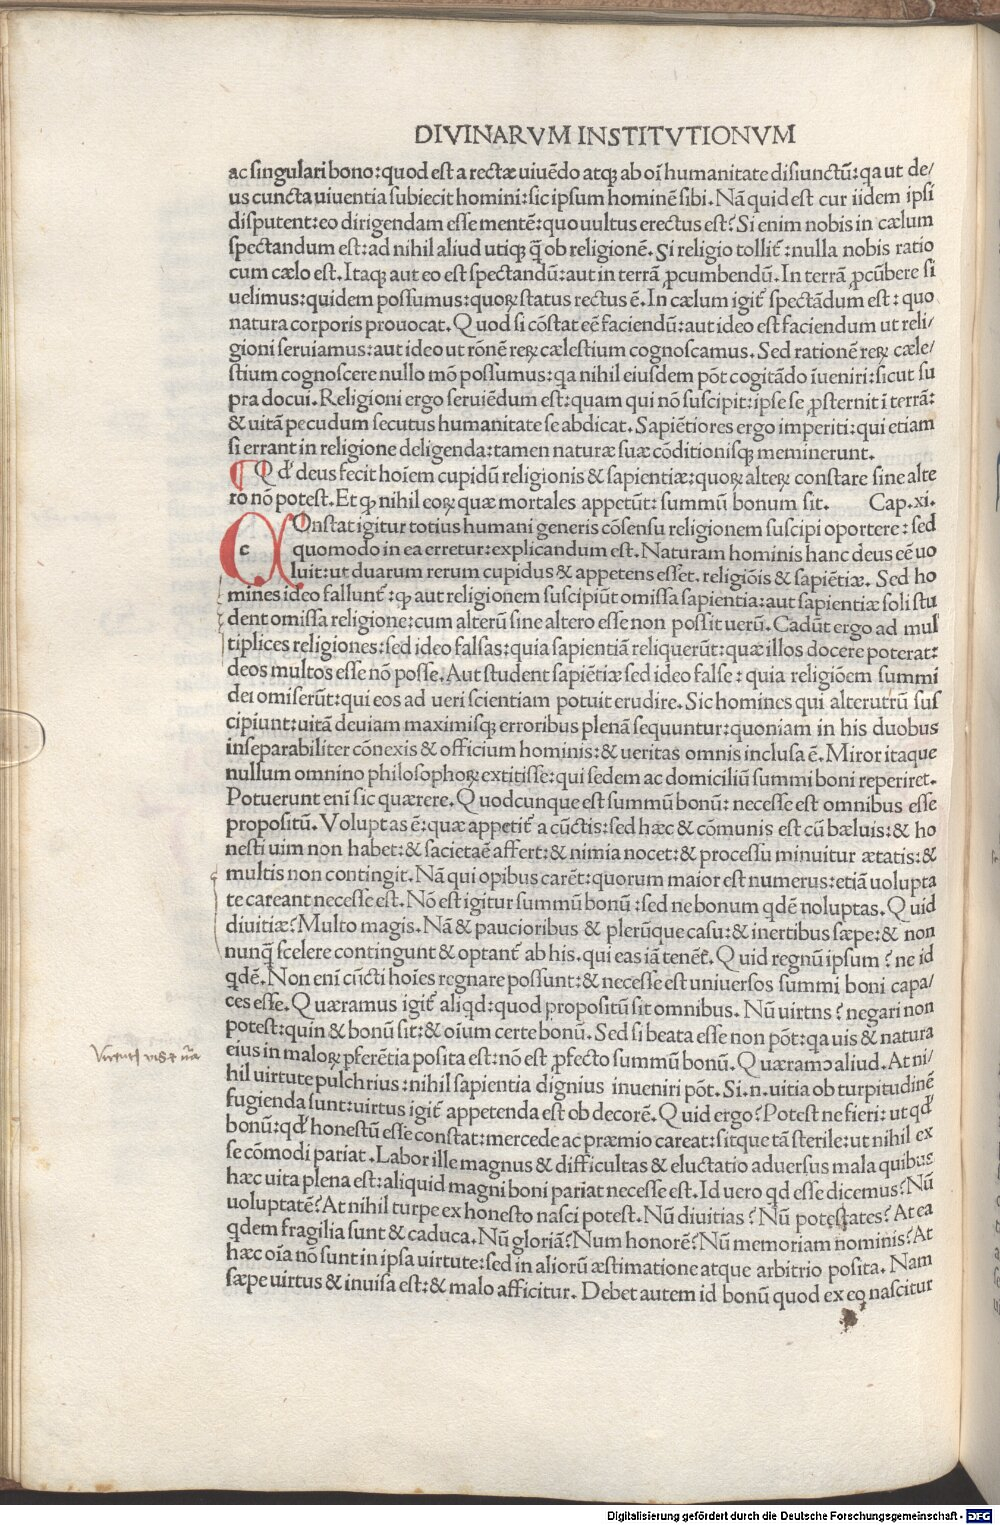 DIVINARVM INSTITVTIONVM
ac singulari bono: quod est a rectæ uiuēdo atqꝫ ab oī humanitate disiunctū: qa ut de/
us cuncta uiuentia subiecit homini: sic ipsum hominē sibi. Nā quid est cur iidem ipsi
disputent: eo dirigendam esse mentē: quo uultus erectus est? Si enim nobis in cælum
spectandum est: ad nihil aliud utiqꝫ q̄ ob religionē. Si religio tollit̄: nulla nobis ratio
cum cælo est. Itaqꝫ aut eo est spectandū: aut in terrā ꝓcumbendū. In terrā ꝓcūbere si
uelimus: quidem possumus: quoꝝ status rectus ē. In cælum igit̄ spectādum est: quo
natura corporis prouocat. Quod si cōstat eē faciendū: aut ideo est faciendum ut reli/
gioni seruiamus: aut ideo ut rōnē reꝝ cælestium cognoscamus. Sed rationē reꝝ cæle/
stium cognoscere nullo mō possumus: qa nihil eiusdem pōt cogitādo īueniri: sicut su
pra docui. Religioni ergo seruiēdum est: quam qui nō suscipit: ipse se ꝓsternit ī terrā:
& uitā pecudum secutus humanitate se abdicat. Sapiētiores ergo imperiti: qui etiam
si errant in religione deligenda: tamen naturæ suæ cōditionisqꝫ meminerunt.
¶ Qd' deus fecit hoīem cupidū religionis & sapientiæ: quoꝝ alteꝝ constare sine alte
ro nō potest. Et ꝙ nihil eoꝝ quæ mortales appetūt: summū bonum sit. Cap. xi.
c Onstat igitur totius humani generis cōsensu religionem suscipi oportere: sed
quomodo in ea erretur: explicandum est. Naturam hominis hanc deus eē uo
luit: ut duarum rerum cupidus & appetens esset. religiōis & sapiētiæ. Sed ho
mines ideo fallunt̄: ꝙ aut religionem suscipiūt omissa sapientia: aut sapientiæ soli stu
dent omissa religione: cum alterū sine altero esse non possit uerū. Cadūt ergo ad mul
tiplices religiones: sed ideo falsas: quia sapientiā reliquerūt: quæ illos docere poterat:
deos multos esse nō posse. Aut student sapiētiæ sed ideo false: quia religiōem summi
dei omiserūt: qui eos ad ueri scientiam potuit erudire. Sic homines qui alterutrū sus
cipiunt: uitā deuiam maximisqꝫ erroribus plenā sequuntur: quoniam in his duobus
inseparabiliter cōnexis & officium hominis: & ueritas omnis inclusa ē. Miror itaque
nullum omnino philosophoꝝ extitisse: qui sedem ac domiciliū summi boni reperiret.
Potuerunt enī sic quærere. Quodcunque est summū bonū: necesse est omnibus esse
propositū. Voluptas ē: quæ appetit̄ a cūctis: sed hæc & cōmunis est cū bæluis: & ho
nesti uim non habet: & sacietaē affert: & nimia nocet: & processu minuitur ætatis: &
multis non contingit. Nā qui opibus carēt: quorum maior est numerus: etiā uolupta
te careant necesse est. Nō est igitur summū bonū: sed ne bonum qdē uoluptas. Quid
diuitiæ? Multo magis. Nā & paucioribus & plerūque casu: & inertibus sæpe: & non
nunq̄ scelere contingunt & optant̄ ab his. qui eas iā tenēt. Quid regnū ipsum? ne id
qdē. Non enī cūcti hoīes regnare possunt: & necesse est uniuersos summi boni capa/
ces esse. Quæramus igit̄ aliqd: quod propositū sit omnibus. Nū uirtns? negari non
potest: quin & bonū sit: & oīum certe bonū. Sed si beata esse non pōt: qa uis & natura
eius in maloꝝ pferētia posita est: nō est ꝓfecto summū bonū. Quæramꝰ aliud. At ni/
hil uirtute pulchrius: nihil sapientia dignius inueniri pōt. Si. n. uitia ob turpitudinē
fugienda sunt: uirtus igit̄ appetenda est ob decorē. Quid ergo? Potest ne fieri: ut qd'
bonū: qd' honestū esse constat: mercede ac præmio careat: sitque tā sterile: ut nihil ex
se cōmodi pariat. Labor ille magnus & difficultas & eluctatio aduersus mala quibus
hæc uita plena est: aliquid magni boni pariat necesse est. Id uero qd esse dicemus? Nū
uoluptatē? At nihil turpe ex honesto nasci potest. Nū diuitias? Nū potestates? At ea
qdem fragilia sunt & caduca. Nū gloriā? Num honorē? Nū memoriam nominis? At
hæc oīa nō sunt in ipsa uirtute: sed in aliorū æstimatione atque arbitrio posita. Nam
sæpe uirtus & inuisa est: & malo afficitur. Debet autem id bonū quod ex eo nascitur
Digitalisierung gefördert durch die Deutsche Forschungsgemeinschaft - DFG